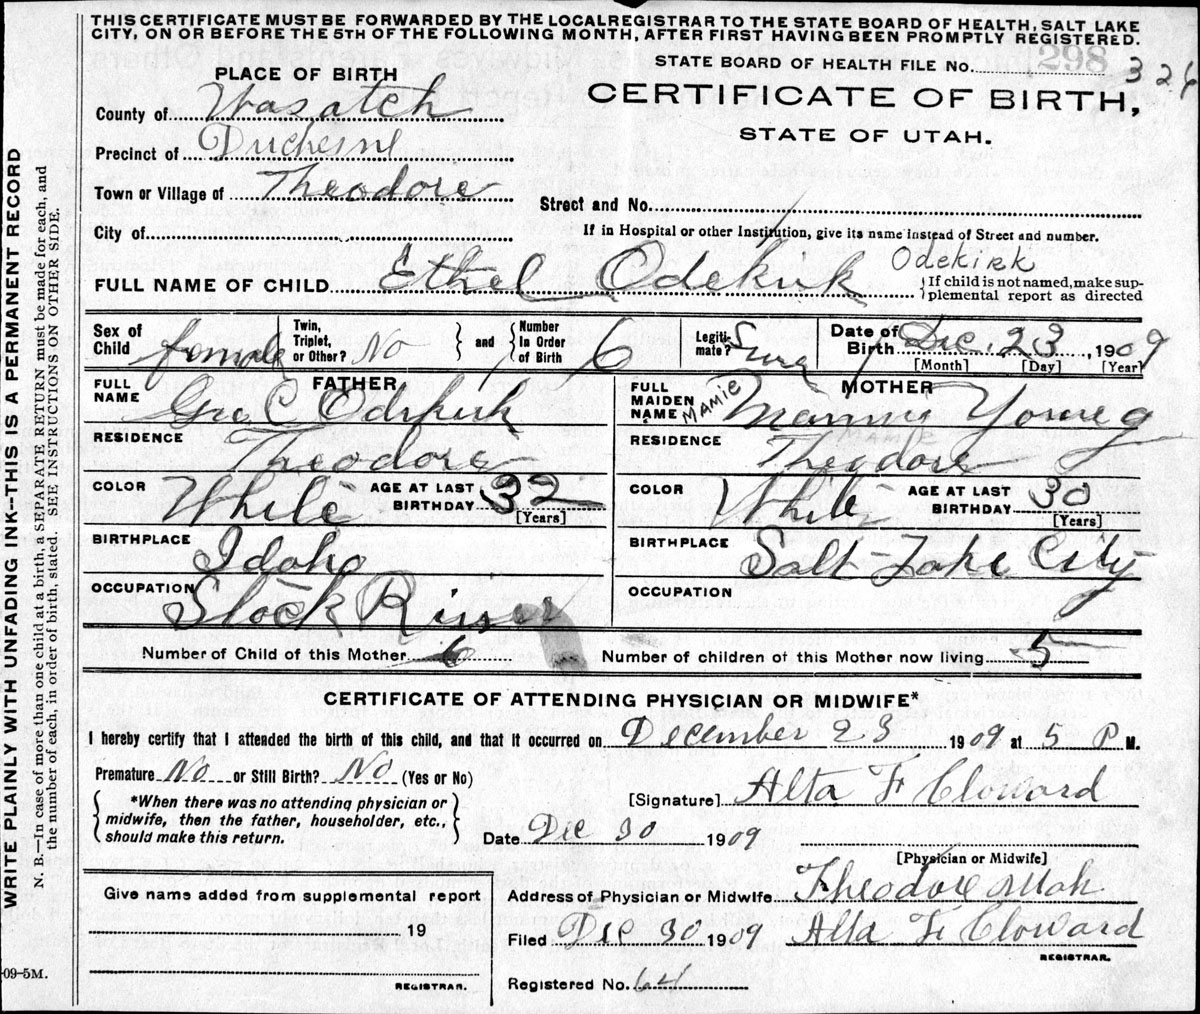 THIS CERTIFICATE MUST BE FORWARDED BY THE LOCAL REGISTRAR TO THE STATE BOARD OF HEALTH, SALT LAKE
CITY, ON OR BEFORE THE 5TH OF THE FOLLOWING MONTH, AFTER FIRST HAVING BEEN PROMPTLY REGISTERED.
298
STATE BOARD OF HEALTH FILE No. 326
PLACE OF BIRTH
CERTIFICATE OF BIRTH,
STATE OF UTAH.
County of Wasatch
Precinct of Duchesne
Town or Village of Theodore
Street and No.
City of
If in Hospital or other Institution, give its name instead of Street and number.
FULL NAME OF CHILD Ethel Odekirk Odekirk
If child is not named, make sup-
plemental report as directed
Sex of Child female
Twin, Triplet, or Other? No
and
Number In Order of Birth 6
Legiti-mate? Sure
Date of Birth Dec. 23, 1909
[Month] [Day] [Year]
FATHER
FULL NAME Geo C Odekirk
RESIDENCE Theodore
COLOR White
AGE AT LAST BIRTHDAY 32
[Years]
BIRTHPLACE Idaho
OCCUPATION Stock Riser
MOTHER
FULL MAIDEN NAME MAMIE Mammie Young
MAMIE
RESIDENCE Theodore
COLOR White
AGE AT LAST BIRTHDAY 30
[Years]
BIRTHPLACE Salt Lake City
OCCUPATION
Number of Child of this Mother 6
Number of children of this Mother now living 5
CERTIFICATE OF ATTENDING PHYSICIAN OR MIDWIFE*
I hereby certify that I attended the birth of this child, and that it occurred on December 23 1909 at 5 P M.
Premature No or Still Birth? No (Yes or No)
*When there was no attending physician or
midwife, then the father, householder, etc.,
should make this return.
[Signature] Alta F Cloward
Date Dec 30 1909
[Physician or Midwife]
Give name added from supplemental report
19
REGISTRAR.
Address of Physician or Midwife Theodore Utah
Filed Dec 30 1909 Alta F. Cloward
REGISTRAR.
Registered No. 64
-09-5M.
WRITE PLAINLY WITH UNFADING INK--THIS IS A PERMANENT RECORD
N. B.—In case of more than one child at a birth, a SEPARATE RETURN must be made for each, and
the number of each, in order of birth, stated. SEE INSTRUCTIONS ON OTHER SIDE.